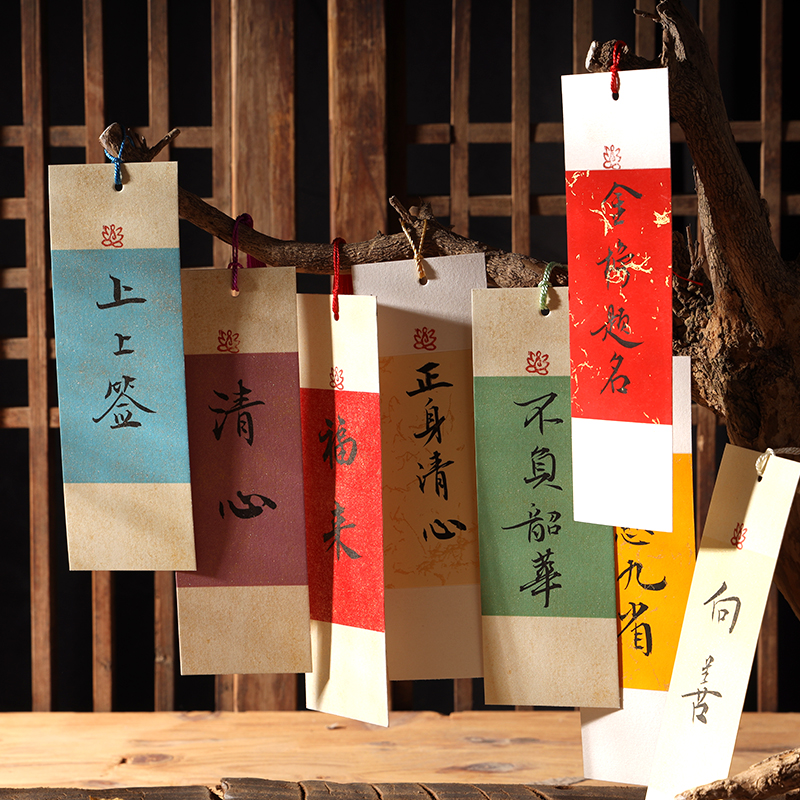 上上签
清心
福来
正身清心
不负韶华
金榜题名
九省
向善